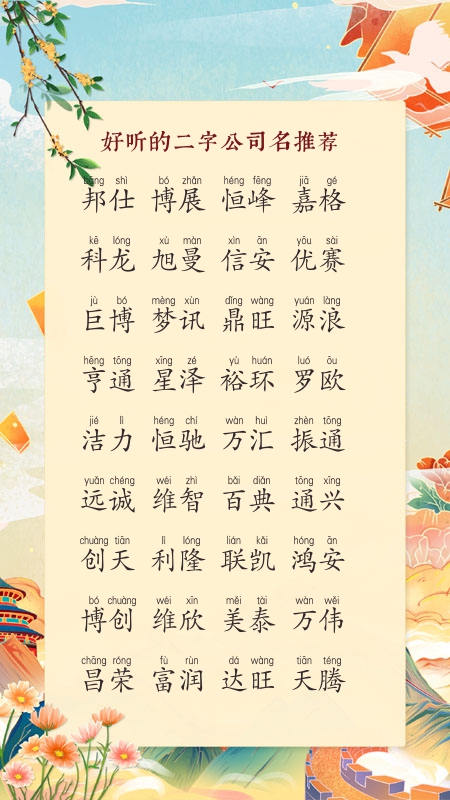 好听的二字公司名推荐
bāng shì bó zhǎn héng fēng jiā gé
邦仕 博展 恒峰 嘉格
kē lóng xù màn xìn ān yōu sài
科龙 旭曼 信安 优赛
jù bó mèng xùn dǐng wàng yuán làng
巨博 梦讯 鼎旺 源浪
hēng tōng xīng zé yù huán luó ōu
亨通 星泽 裕环 罗欧
jié lì héng chí wàn huì zhèn tōng
洁力 恒驰 万汇 振通
yuǎn chéng wéi zhì bǎi diǎn tōng xīng
远诚 维智 百典 通兴
chuàng tiān lì lóng lián kǎi hóng ān
创天 利隆 联凯 鸿安
bó chuàng wéi xīn měi tài wàn wěi
博创 维欣 美泰 万伟
chāng róng fù rùn dá wàng tiān téng
昌荣 富润 达旺 天腾